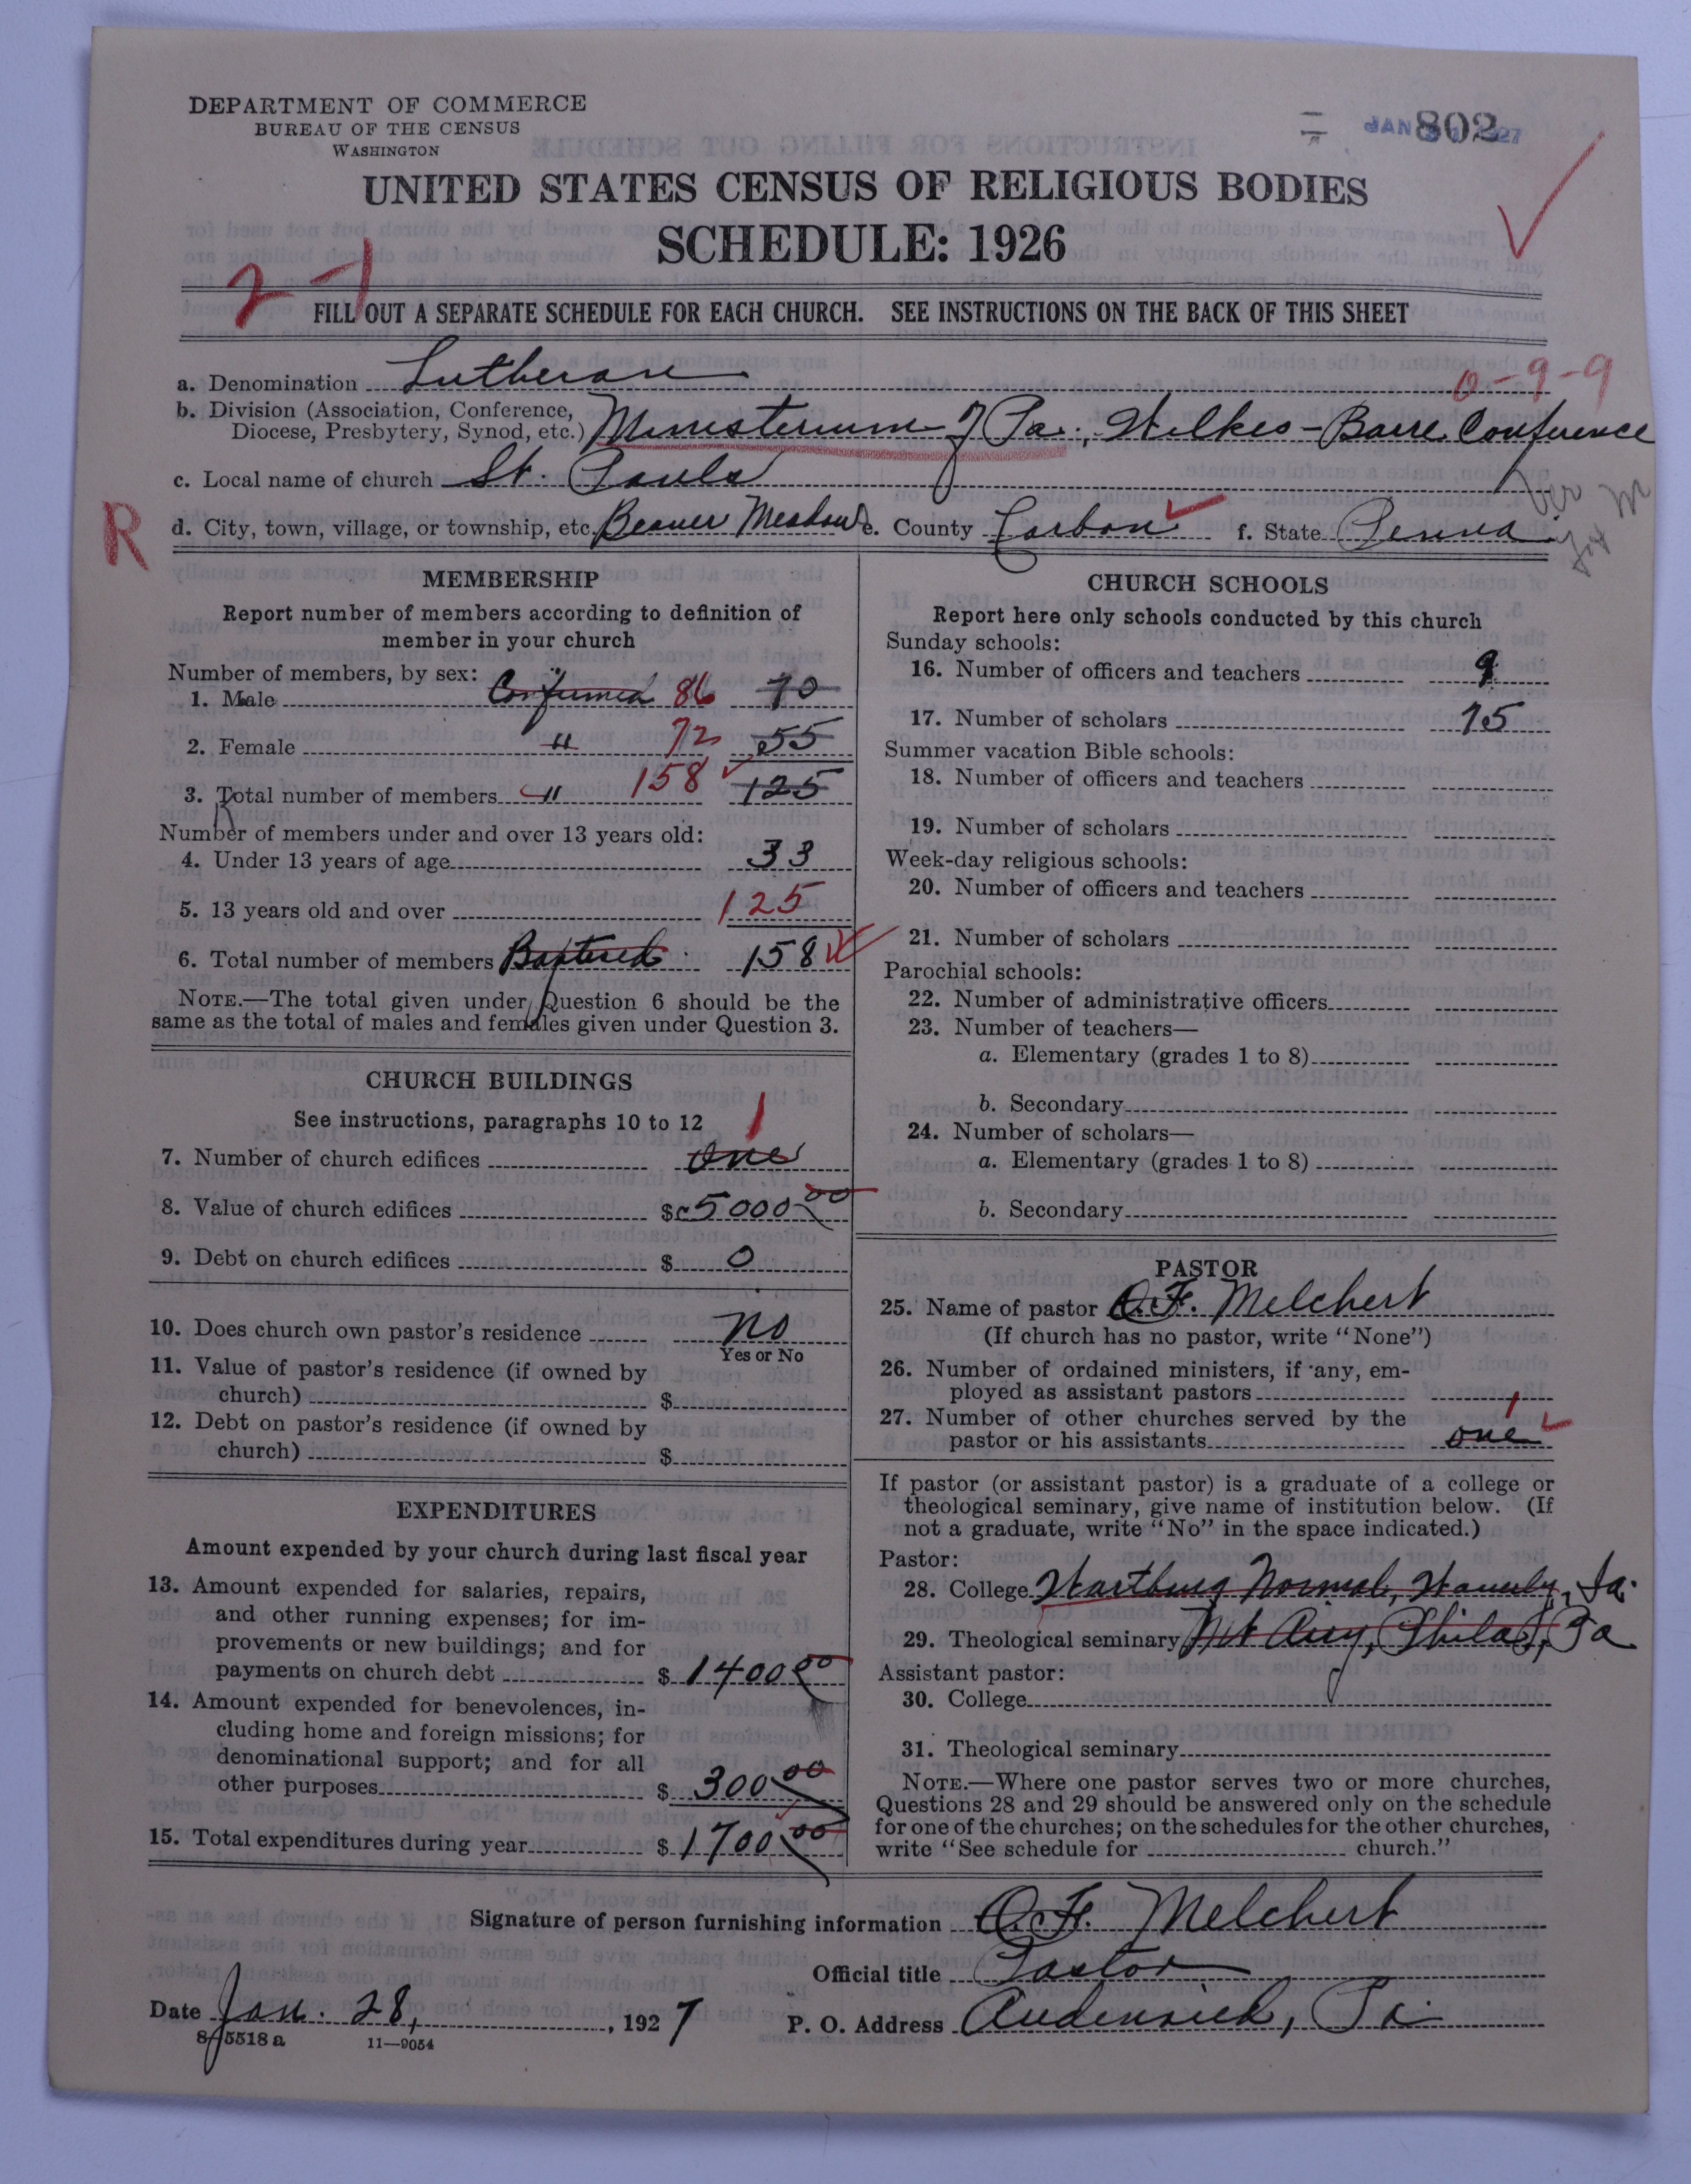 DEPARTMENT OF COMMERCE
BUREAU OF THE CENSUS
WASHINGTON
JAN 802 27
UNITED STATES CENSUS OF RELIGIOUS BODIES
SCHEDULE: 1926
2-1
FILL OUT A SEPARATE SCHEDULE FOR EACH CHURCH. SEE INSTRUCTIONS ON THE BACK OF THIS SHEET
a. Denomination Lutheran 0-9-9
b. Division (Association, Conference, Diocese, Presbytery, Synod, etc.) Ministerium of Pa., Wilkes-Barre Conference
c. Local name of church St. Pauls
R
d. City, town, village, or township, etc. Beaver Meadows e. County Carbon f. State Penna
MEMBERSHIP
Report number of members according to definition of
member in your church
Number of members, by sex:
1. Male Confirmed 86 70
2. Female " 72 55
3. Total number of members " 158 125
Number of members under and over 13 years old:
4. Under 13 years of age 33
5. 13 years old and over 125
6. Total number of members Baptised 158
NOTE.—The total given under Question 6 should be the
same as the total of males and females given under Question 3.
CHURCH BUILDINGS
See instructions, paragraphs 10 to 12
7. Number of church edifices One 1
8. Value of church edifices $5000 00
9. Debt on church edifices $ 0
10. Does church own pastor's residence No
Yes or No
11. Value of pastor's residence (if owned by
church) $
12. Debt on pastor's residence (if owned by
church) $
EXPENDITURES
Amount expended by your church during last fiscal year
13. Amount expended for salaries, repairs,
and other running expenses; for im-
provements or new buildings; and for
payments on church debt $ 1400 00
14. Amount expended for benevolences, in-
cluding home and foreign missions; for
denominational support; and for all
other purposes $ 300 00
15. Total expenditures during year $ 1700 00
CHURCH SCHOOLS
Report here only schools conducted by this church
Sunday schools:
16. Number of officers and teachers 9
17. Number of scholars 75
Summer vacation Bible schools:
18. Number of officers and teachers
19. Number of scholars
Week-day religious schools:
20. Number of officers and teachers
21. Number of scholars
Parochial schools:
22. Number of administrative officers
23. Number of teachers—
a. Elementary (grades 1 to 8)
b. Secondary
24. Number of scholars—
a. Elementary (grades 1 to 8)
b. Secondary
PASTOR
25. Name of pastor O. F. Melchert
(If church has no pastor, write "None")
26. Number of ordained ministers, if any, em-
ployed as assistant pastors
27. Number of other churches served by the
pastor or his assistants one 1
If pastor (or assistant pastor) is a graduate of a college or
theological seminary, give name of institution below. (If
not a graduate, write "No" in the space indicated.)
Pastor:
28. College Wartburg Normal, Waverly, Ia.
29. Theological seminary Mt Airy, Phila, Pa
Assistant pastor:
30. College
31. Theological seminary
NOTE.—Where one pastor serves two or more churches,
Questions 28 and 29 should be answered only on the schedule
for one of the churches; on the schedules for the other churches,
write "See schedule for church."
Signature of person furnishing information O. F. Melchert
Official title Pastor
Date Jan. 28, 1927 P. O. Address Audenried, Pa.
8-5518 a 11—9054